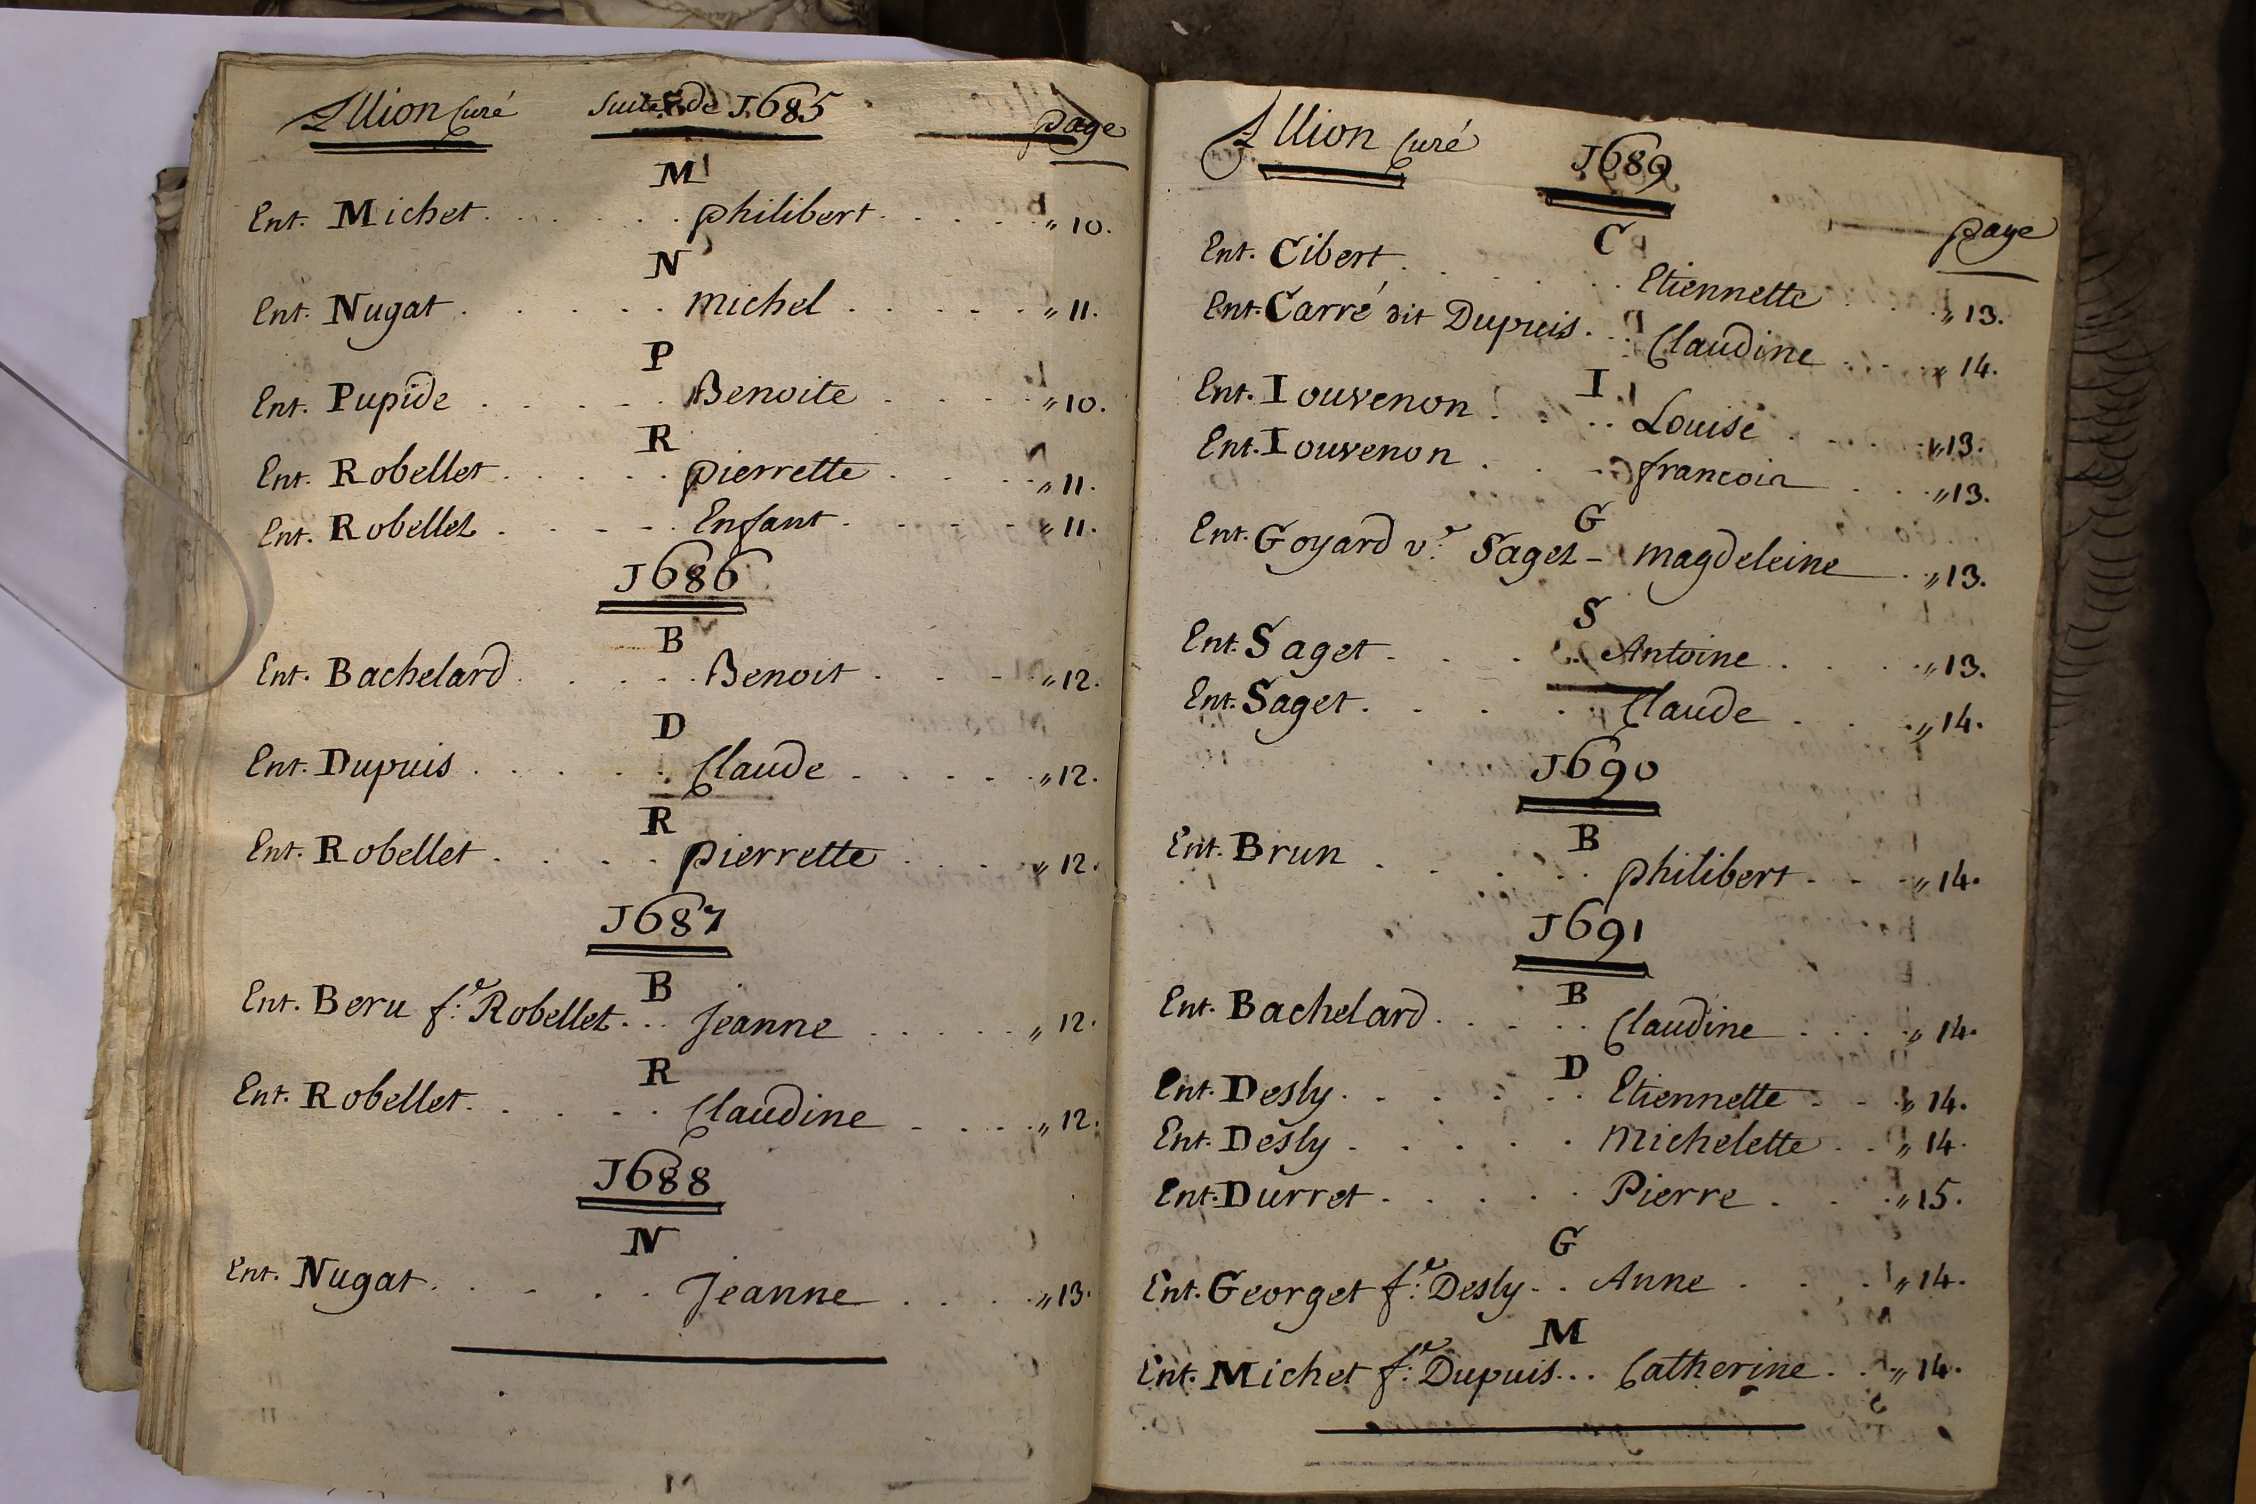 Allion Curé Suite de 1685 page
M
Ent. Michet. . . . . . . philibert. . . . . . „10.
N
Ent. Nugat . . . . . . michel . . . . . . „11.
P
Ent. Pupide . . . . . Benoite . . . . . „10.
R
Ent. Robellet. . . . . . pierrette . . . . . „11.
Ent. Robellet . . . . . Enfant. . . . . . „11.
1686
B
Ent. Bachelard. . . . . . Benoit . . . . „12.
D
Ent. Dupuis . . . . . . Claude . . . . . „12.
R
Ent. Robellet . . . . . pierrette . . . . „12.
1687
B
Ent. Beru f.e Robellet. . . Jeanne . . . . . „12.
R
Ent. Robellet. . . . . . Claudine . . . . „12.
1688
N
Ent. Nugat. . . . . . Jeanne . . . . „13.
Allion Curé 1689
page
C
Ent. Cibert . . . . . . Etiennette . . . „13.
Ent. Carré dit Dupuis. . . Claudine . . . . „14.
I
Ent. Iouvenon . . . . Louise . . . . „13.
Ent. Iouvenon . . . francois . . . „13.
G
Ent. Goyard v.e Saget - magdeleine . „13.
S
Ent. Saget . . . . . Antoine . . . . „13.
Ent. Saget. . . . . Claude . . . . „14.
1690
B
Ent. Brun . . . . . . philibert . . . „14.
1691
B
Ent. Bachelard. . . . . Claudine . . . . „14.
D
Ent. Desly. . . . . . . Etiennette . . . „14.
Ent. Desly . . . . . . michelette . . „14.
Ent. Durret. . . . . . Pierre . . . . „15.
G
Ent. Georget f.e Desly . . Anne . . . . „14.
M
Ent. Michet f.e Dupuis. . . Catherine. . . „14.